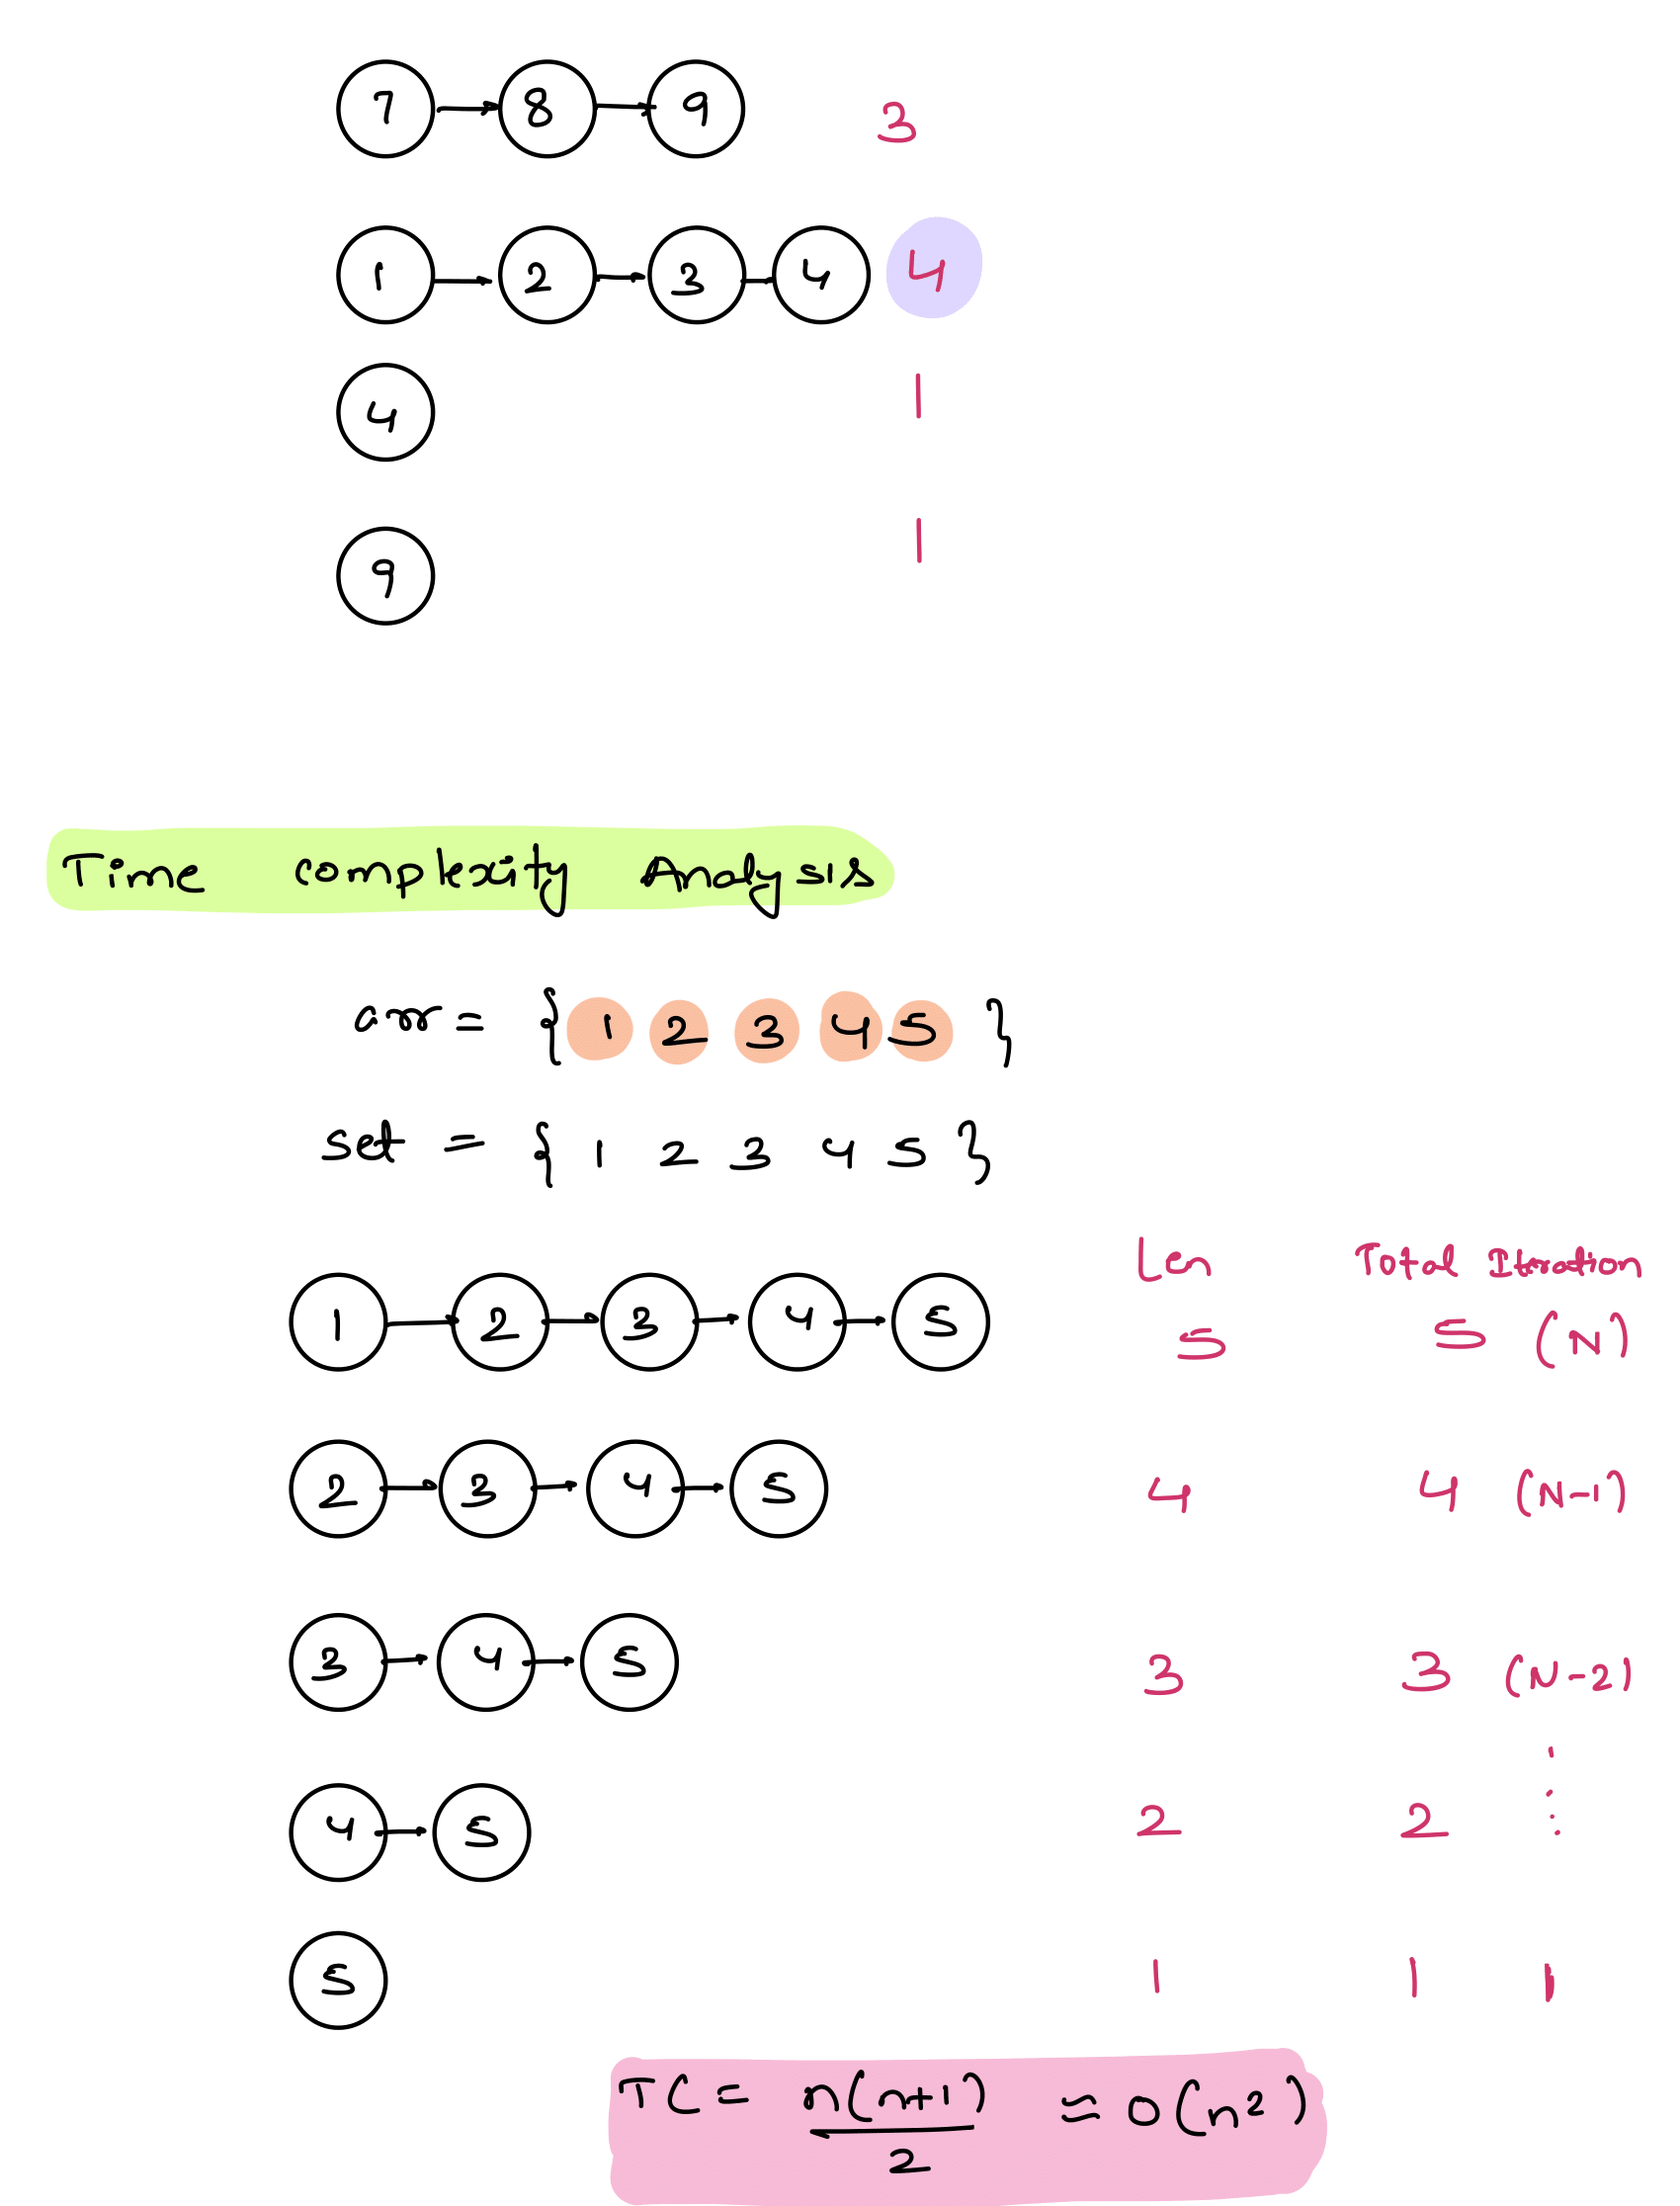 7 8 9 3
1 2 3 4 4
4 1
9 1
Time complexity Analysis
arr = { 1 2 3 4 5 }
set = { 1 2 3 4 5 }
Len Total Iteration
1 2 3 4 5 5 5 (N)
2 3 4 5 4 4 (N-1)
3 4 5 3 3 (N-2)
4 5 2 2
5 1 1 1
TC = n(n+1)/2 ≈ O(n²)